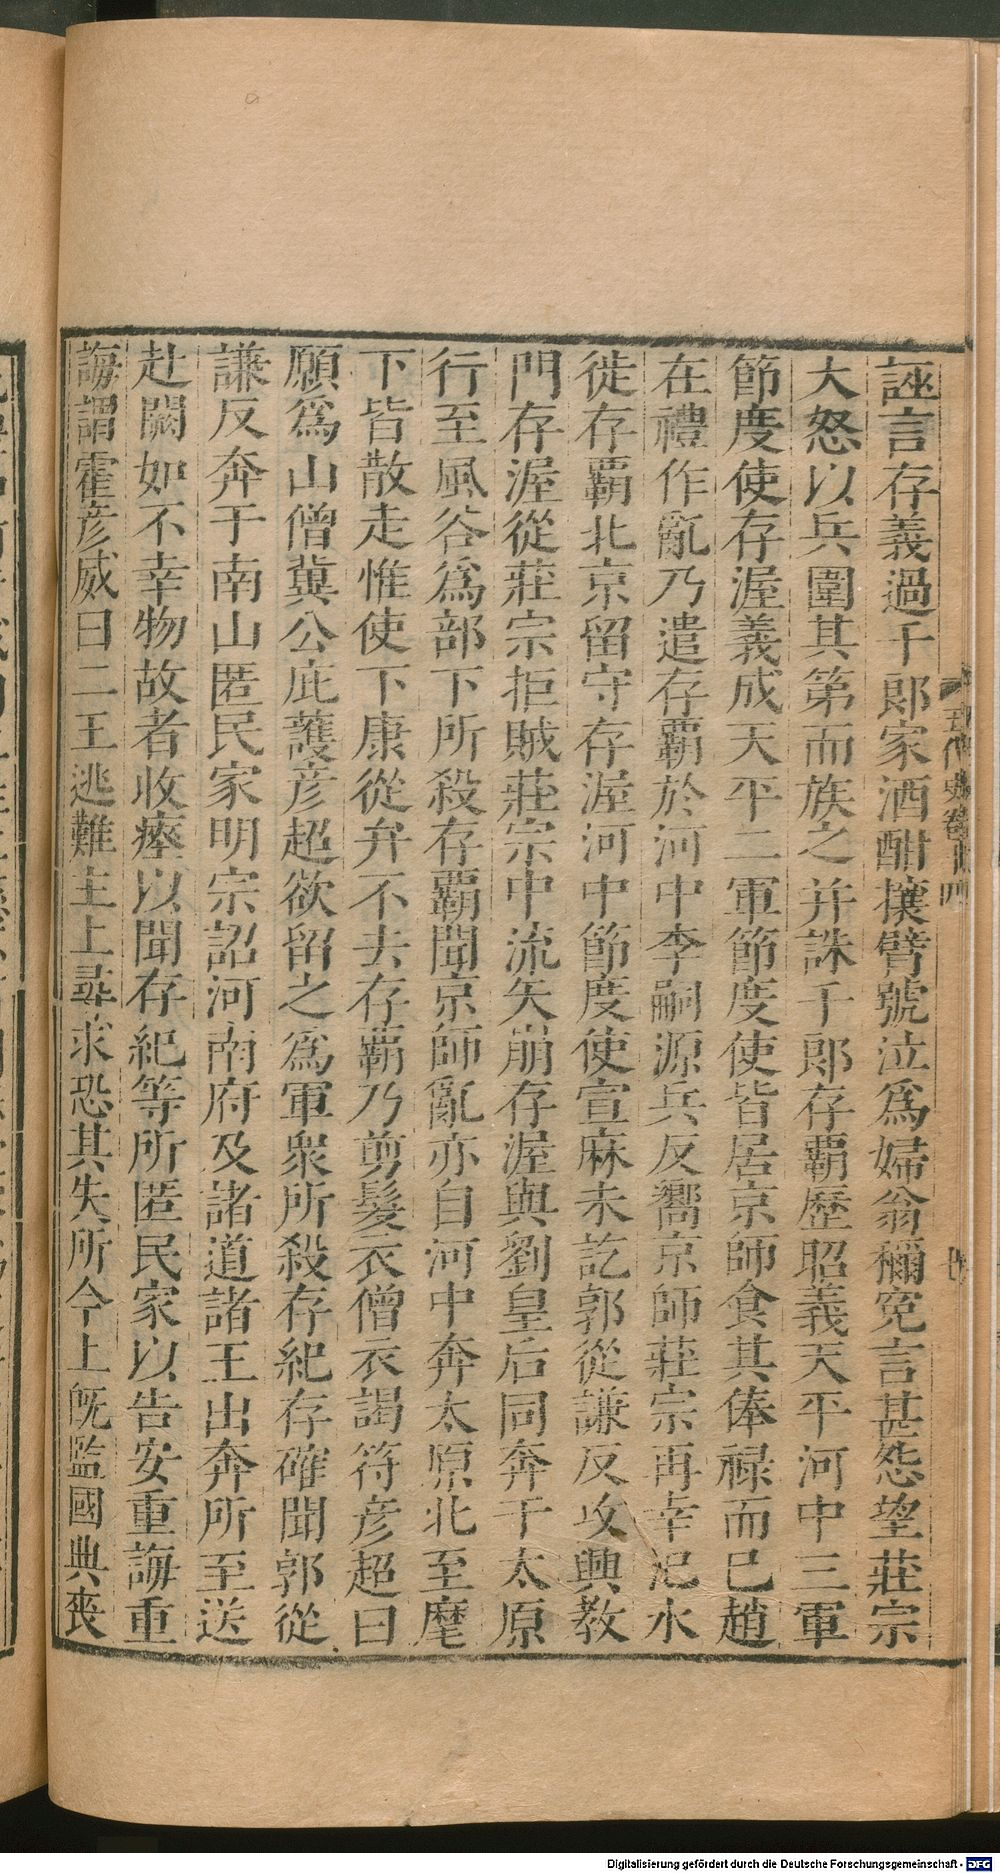 誣言存義過千郞家酒酣攘臂號泣爲婦翁稱冤言甚怨望莊宗
大怒以兵圍其第而族之并誅千郞存覇歷昭義天平河中三軍
節度使存渥義成天平二軍節度使皆居京師食其俸祿而已趙
在禮作亂乃遣存覇於河中李嗣源兵反嚮京師莊宗再幸汜水
徙存覇北京留守存渥河中節度使宣麻未訖郭從謙反攻興教
門存渥從莊宗拒賊莊宗中流矢崩存渥與劉皇后同奔于太原
行至風谷爲部下所殺存覇聞京師亂亦自河中奔太原北至麾
下皆散走惟使下康從弁不去存覇乃剪髮衣僧衣謁符彦超曰
願爲山僧冀公庇護彦超欲留之爲軍衆所殺存紀存確聞郭從
謙反奔于南山匿民家明宗詔河南府及諸道諸王出奔所至送
赴闕如不幸物故者收瘞以聞存紀等所匿民家以告安重誨重
誨謂霍彦威曰二王逃難主上尋求恐其失所今上旣監國典喪
五代史卷十四
Digitalisierung gefördert durch die Deutsche Forschungsgemeinschaft - DFG